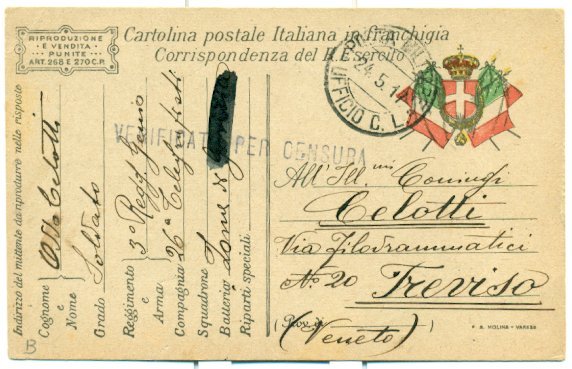 RIPRODUZIONE
E VENDITA
PUNITE
ART. 268 E 270 C.P.
Cartolina postale Italiana in franchigia
Corrispondenza del R. Esercito
24.5.17
UFFICIO C. L.
VERIFICATO PER CENSURA
All' Ill.mi Coniugi
Celotti
Via Filodrammatici
No 20 Treviso
(Prov. di
(Veneto)
F. A. MOLINA - VARESE
Indirizzo del mittente da riprodurre nelle risposte
Cognome e Nome Celotti
Grado Soldato
Reggimento e Arma 3o Regg. Genio
Compagnia 26a Telegrafisti
Squadrone
Batteria Zona di
Riparti speciali
B